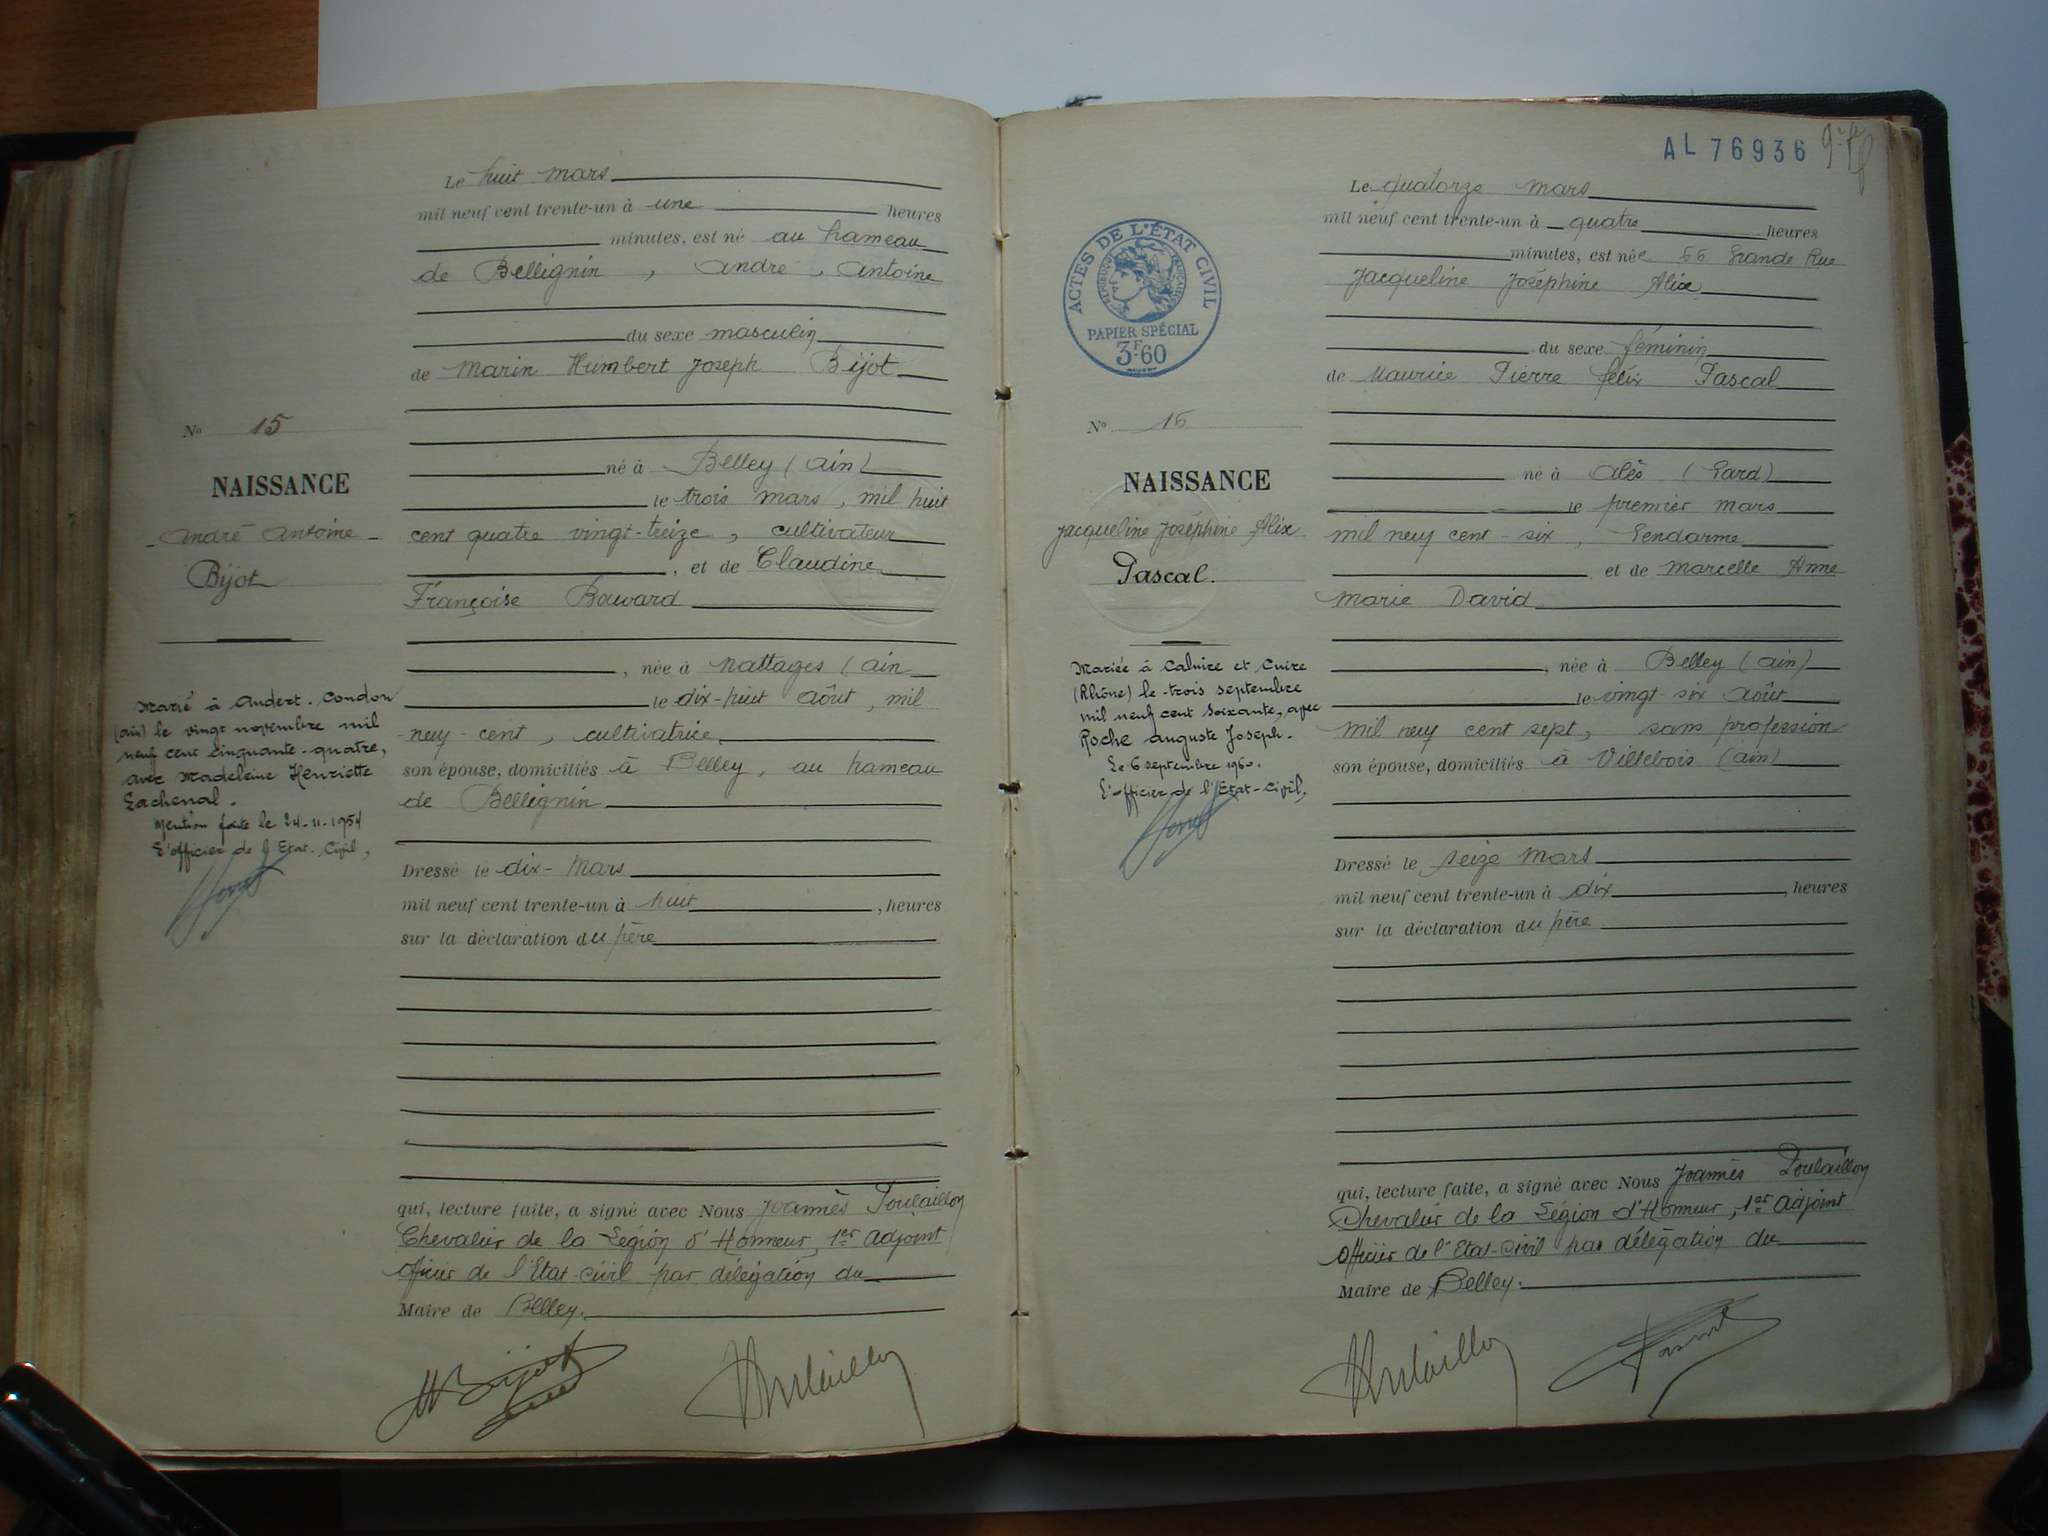 Le huit mars
mil neuf cent trente-un à une heures
minutes, est né au hameau
de Bellignin, André, Antoine
du sexe masculin
de Marin Humbert Joseph Bijot
né à Belley (Ain)
le trois mars, mil huit
cent quatre vingt-treize, cultivateur
, et de Claudine
Françoise Bouvard
, née à Nattages (Ain
le dix-huit août, mil
neuf-cent, cultivatrice
son épouse, domiciliés à Belley, au hameau
de Bellignin
Dressé le dix-Mars
mil neuf cent trente-un à huit, heures
sur la déclaration du père
qui, lecture faite, a signé avec Nous Joannès Poulaillon
Chevalier de la Légion d'Honneur, 1er adjoint
officier de l'Etat-civil par délégation du
Maire de Belley.
No 15
NAISSANCE
André Antoine
Bijot
Marié à Andert-Condon
(Ain) le vingt novembre mil
neuf cent cinquante-quatre,
avec Madeleine Henriette
Lachenal.
Mention faite le 24-11-1954
L'officier de l'Etat-Civil,
AL 76936
ACTES DE L'ÉTAT CIVIL
PAPIER SPÉCIAL
3F.60
Le quatorze mars
mil neuf cent trente-un à quatre heures
minutes, est née Grande Rue
Jacqueline Joséphine Alix
du sexe féminin
de Maurice Pierre Félix Pascal
né à Alès (Gard)
le premier mars
mil neuf cent-six, Gendarme
et de Marcelle Anne
Marie David
, née à Belley (Ain)
le vingt-six août
mil neuf cent sept, sans profession
son épouse, domiciliés à Villebois (Ain)
Dressé le seize Mars
mil neuf cent trente-un à dix, heures
sur la déclaration du père
qui, lecture faite, a signé avec Nous Joannès Poulaillon
Chevalier de la Légion d'Honneur, 1er adjoint
officier de l'Etat-civil par délégation du
Maire de Belley.
No 16
NAISSANCE
Jacqueline Joséphine Alix
Pascal.
Mariée à Caluire et Cuire
(Rhône) le trois septembre
mil neuf cent soixante, avec
Roche Auguste Joseph.
Le 6 septembre 1960.
L'officier de l'Etat-Civil,